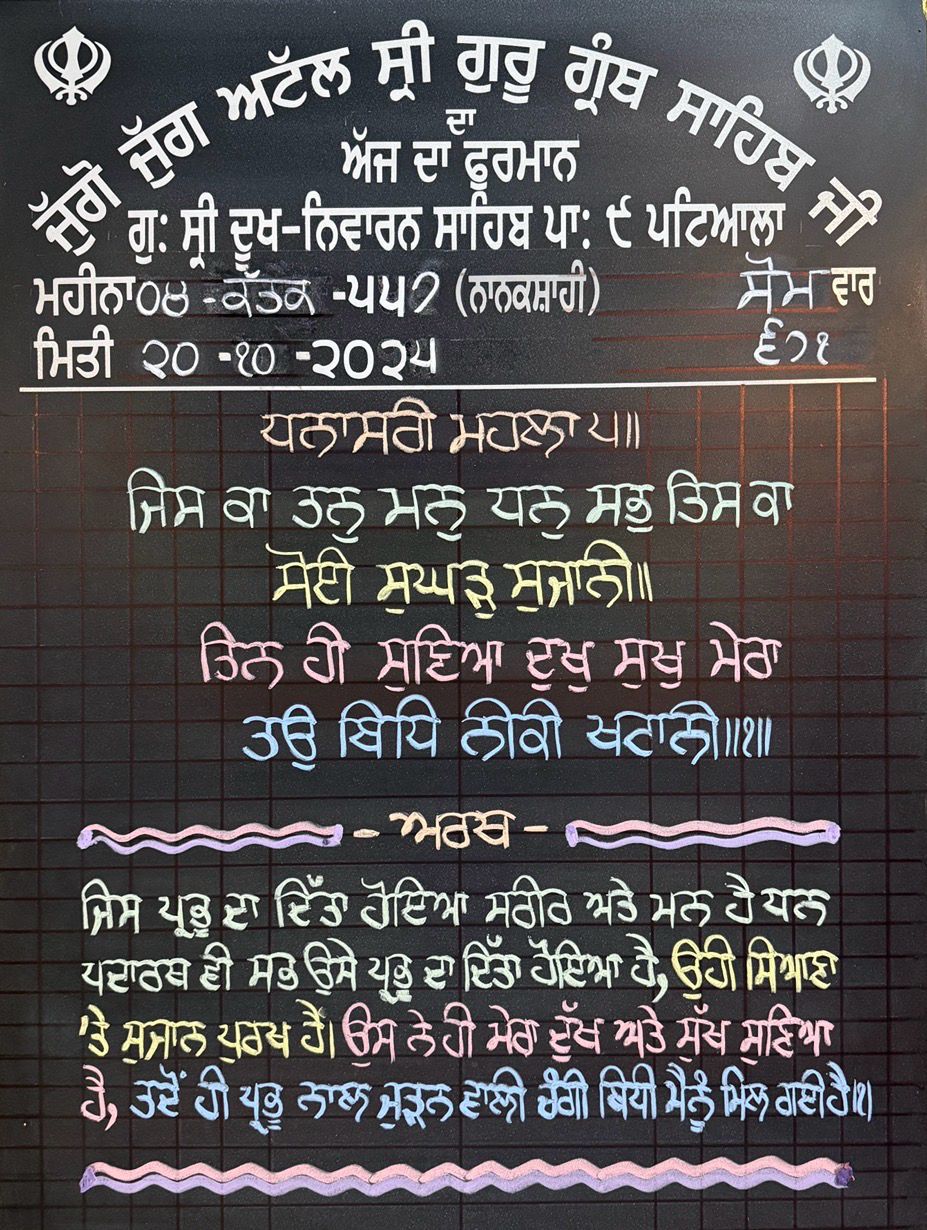 ਜੁੱਗੋ ਜੁੱਗ ਅਟੱਲ ਸ੍ਰੀ ਗੁਰੂ ਗ੍ਰੰਥ ਸਾਹਿਬ ਜੀ
ਦਾ
ਅੱਜ ਦਾ ਫੂਰਮਾਨ
ਗੁ: ਸ੍ਰੀ ਦੂਖ-ਨਿਵਾਰਨ ਸਾਹਿਬ ਪਾ: ੯ ਪਟਿਆਲਾ
ਮਹੀਨਾ ੦੪ -ਕੱਤਕ -੫੫੭ (ਨਾਨਕਸ਼ਾਹੀ) ਸੋਮ ਵਾਰ
ਮਿਤੀ ੨੦ -੧੦ -੨੦੨੫ ੬੭੧
ਧਨਾਸਰੀ ਮਹਲਾ ੫॥
ਜਿਸ ਕਾ ਤਨੁ ਮਨੁ ਧਨੁ ਸਭੁ ਤਿਸ ਕਾ
ਸੋਈ ਸੁਘੜੁ ਸੁਜਾਨੀ॥
ਤਿਨ ਹੀ ਸੁਣਿਆ ਦੁਖੁ ਸੁਖੁ ਮੇਰਾ
ਤਉ ਬਿਧਿ ਨੀਕੀ ਖਟਾਨੀ॥੧॥
- ਅਰਥ -
ਜਿਸ ਪ੍ਰਭੂ ਦਾ ਦਿੱਤਾ ਹੋਇਆ ਸਰੀਰ ਅਤੇ ਮਨ ਹੈ ਧਨ
ਪਦਾਰਥ ਵੀ ਸਭ ਉਸੇ ਪ੍ਰਭੂ ਦਾ ਦਿੱਤਾ ਹੋਇਆ ਹੈ, ਉਹੀ ਸਿਆਣਾ
'ਤੇ ਸੁਜਾਨ ਪੁਰਖ ਹੈ। ਉਸ ਨੇ ਹੀ ਮੇਰਾ ਦੁੱਖ ਅਤੇ ਸੁੱਖ ਸੁਣਿਆ
ਹੈ, ਤਦੋਂ ਹੀ ਪ੍ਰਭੂ ਨਾਲ ਜੁੜਨ ਵਾਲੀ ਚੰਗੀ ਬਿਧੀ ਮੈਨੂੰ ਮਿਲ ਗਈ ਹੈ।੧।